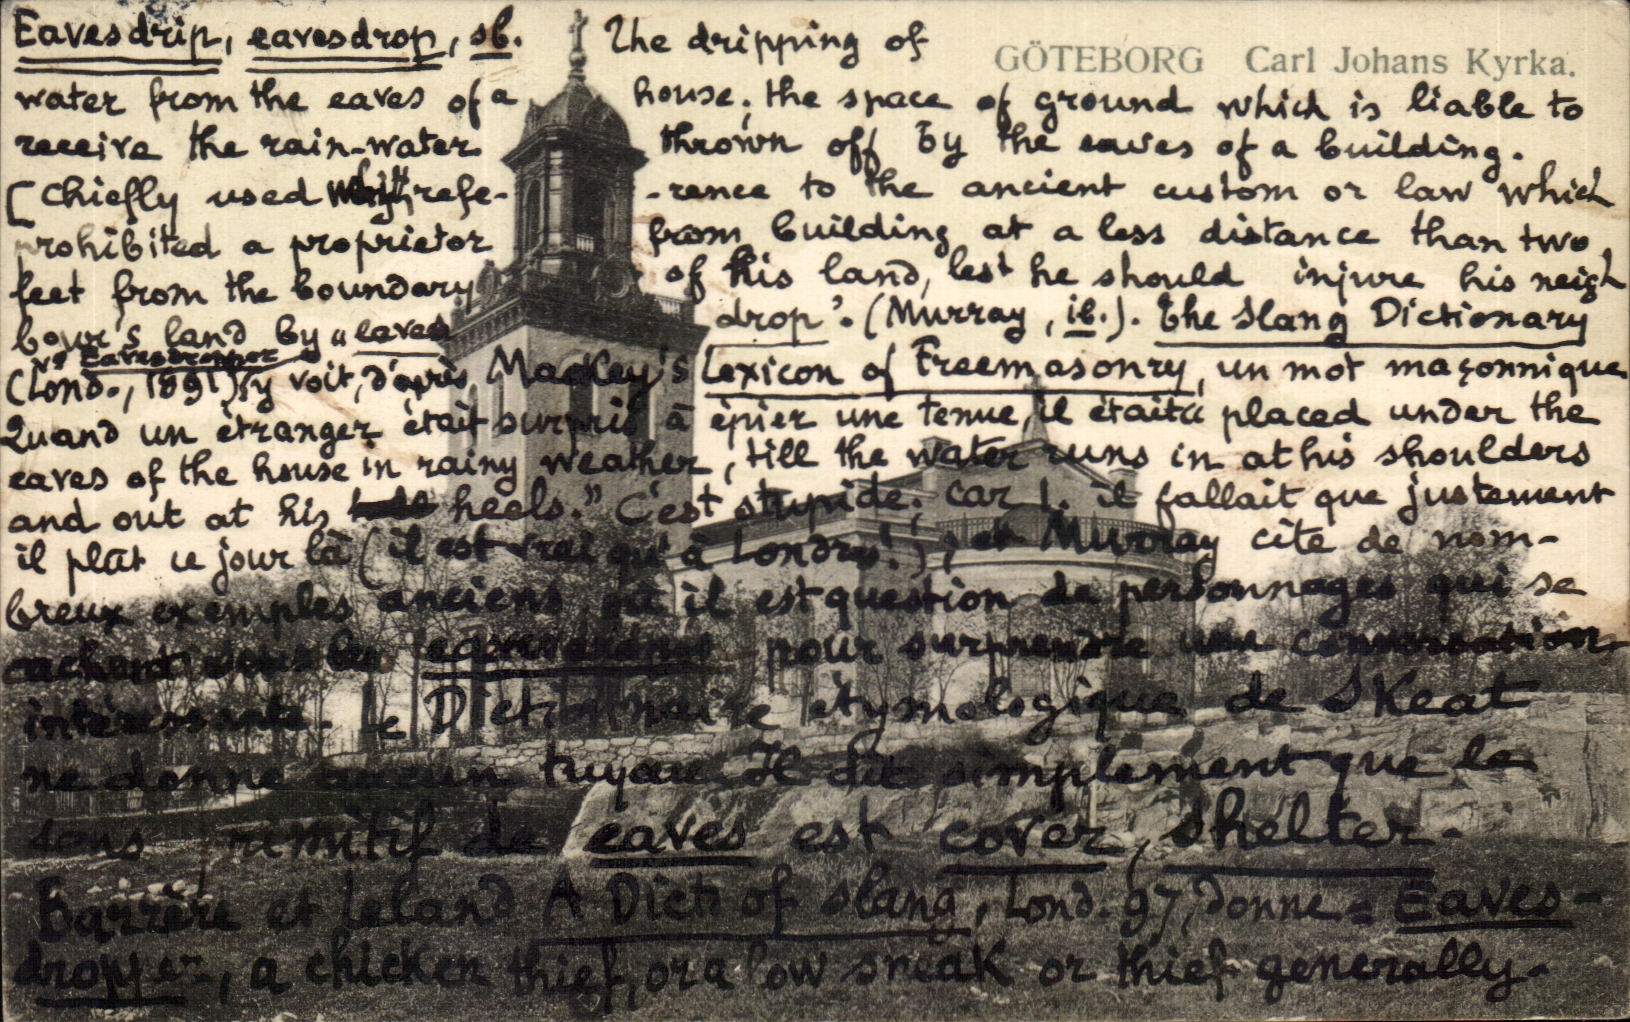 GÖTEBORG Carl Johans Kyrka.
Eavesdrip, eavesdrop, sb. The dripping of
water from the eaves of a house; the space of ground which is liable to
receive the rain-water thrown off by the eaves of a building.
[Chiefly used with refe- -rence to the ancient custom or law which
prohibited a proprietor from building at a less distance than two
feet from the boundary of his land, lest he should injure his neigh
bour's land by "eaves drop". (Murray, ib.). The Slang Dictionary
(Lond., 1891), v° Eavesdropper y voit, d'après Mackey's Lexicon of Freemasonry, un mot maçonnique.
Quand un étranger était surpris à épier une tenue, il était "placed under the
eaves of the house in rainy weather, till the water runs in at his shoulders
and out at his heels." C'est stupide; car il fallait que justement
il plût ce jour là (il est vrai qu'à Londres!); et Murray cite de nom-
breux exemples anciens où il est question de personnages qui se
cachent sous les eavesdrop pour surprendre une conversation
intéressante. Le Dictionnaire étymologique de Skeat
ne donne aucun tuyau. Il dit simplement que le
sens primitif de eaves est cover, shelter.
Barrère et Leland A Dict. of slang, Lond. 97, donne = Eaves-
dropper, a chicken thief, or a low sneak or thief generally.